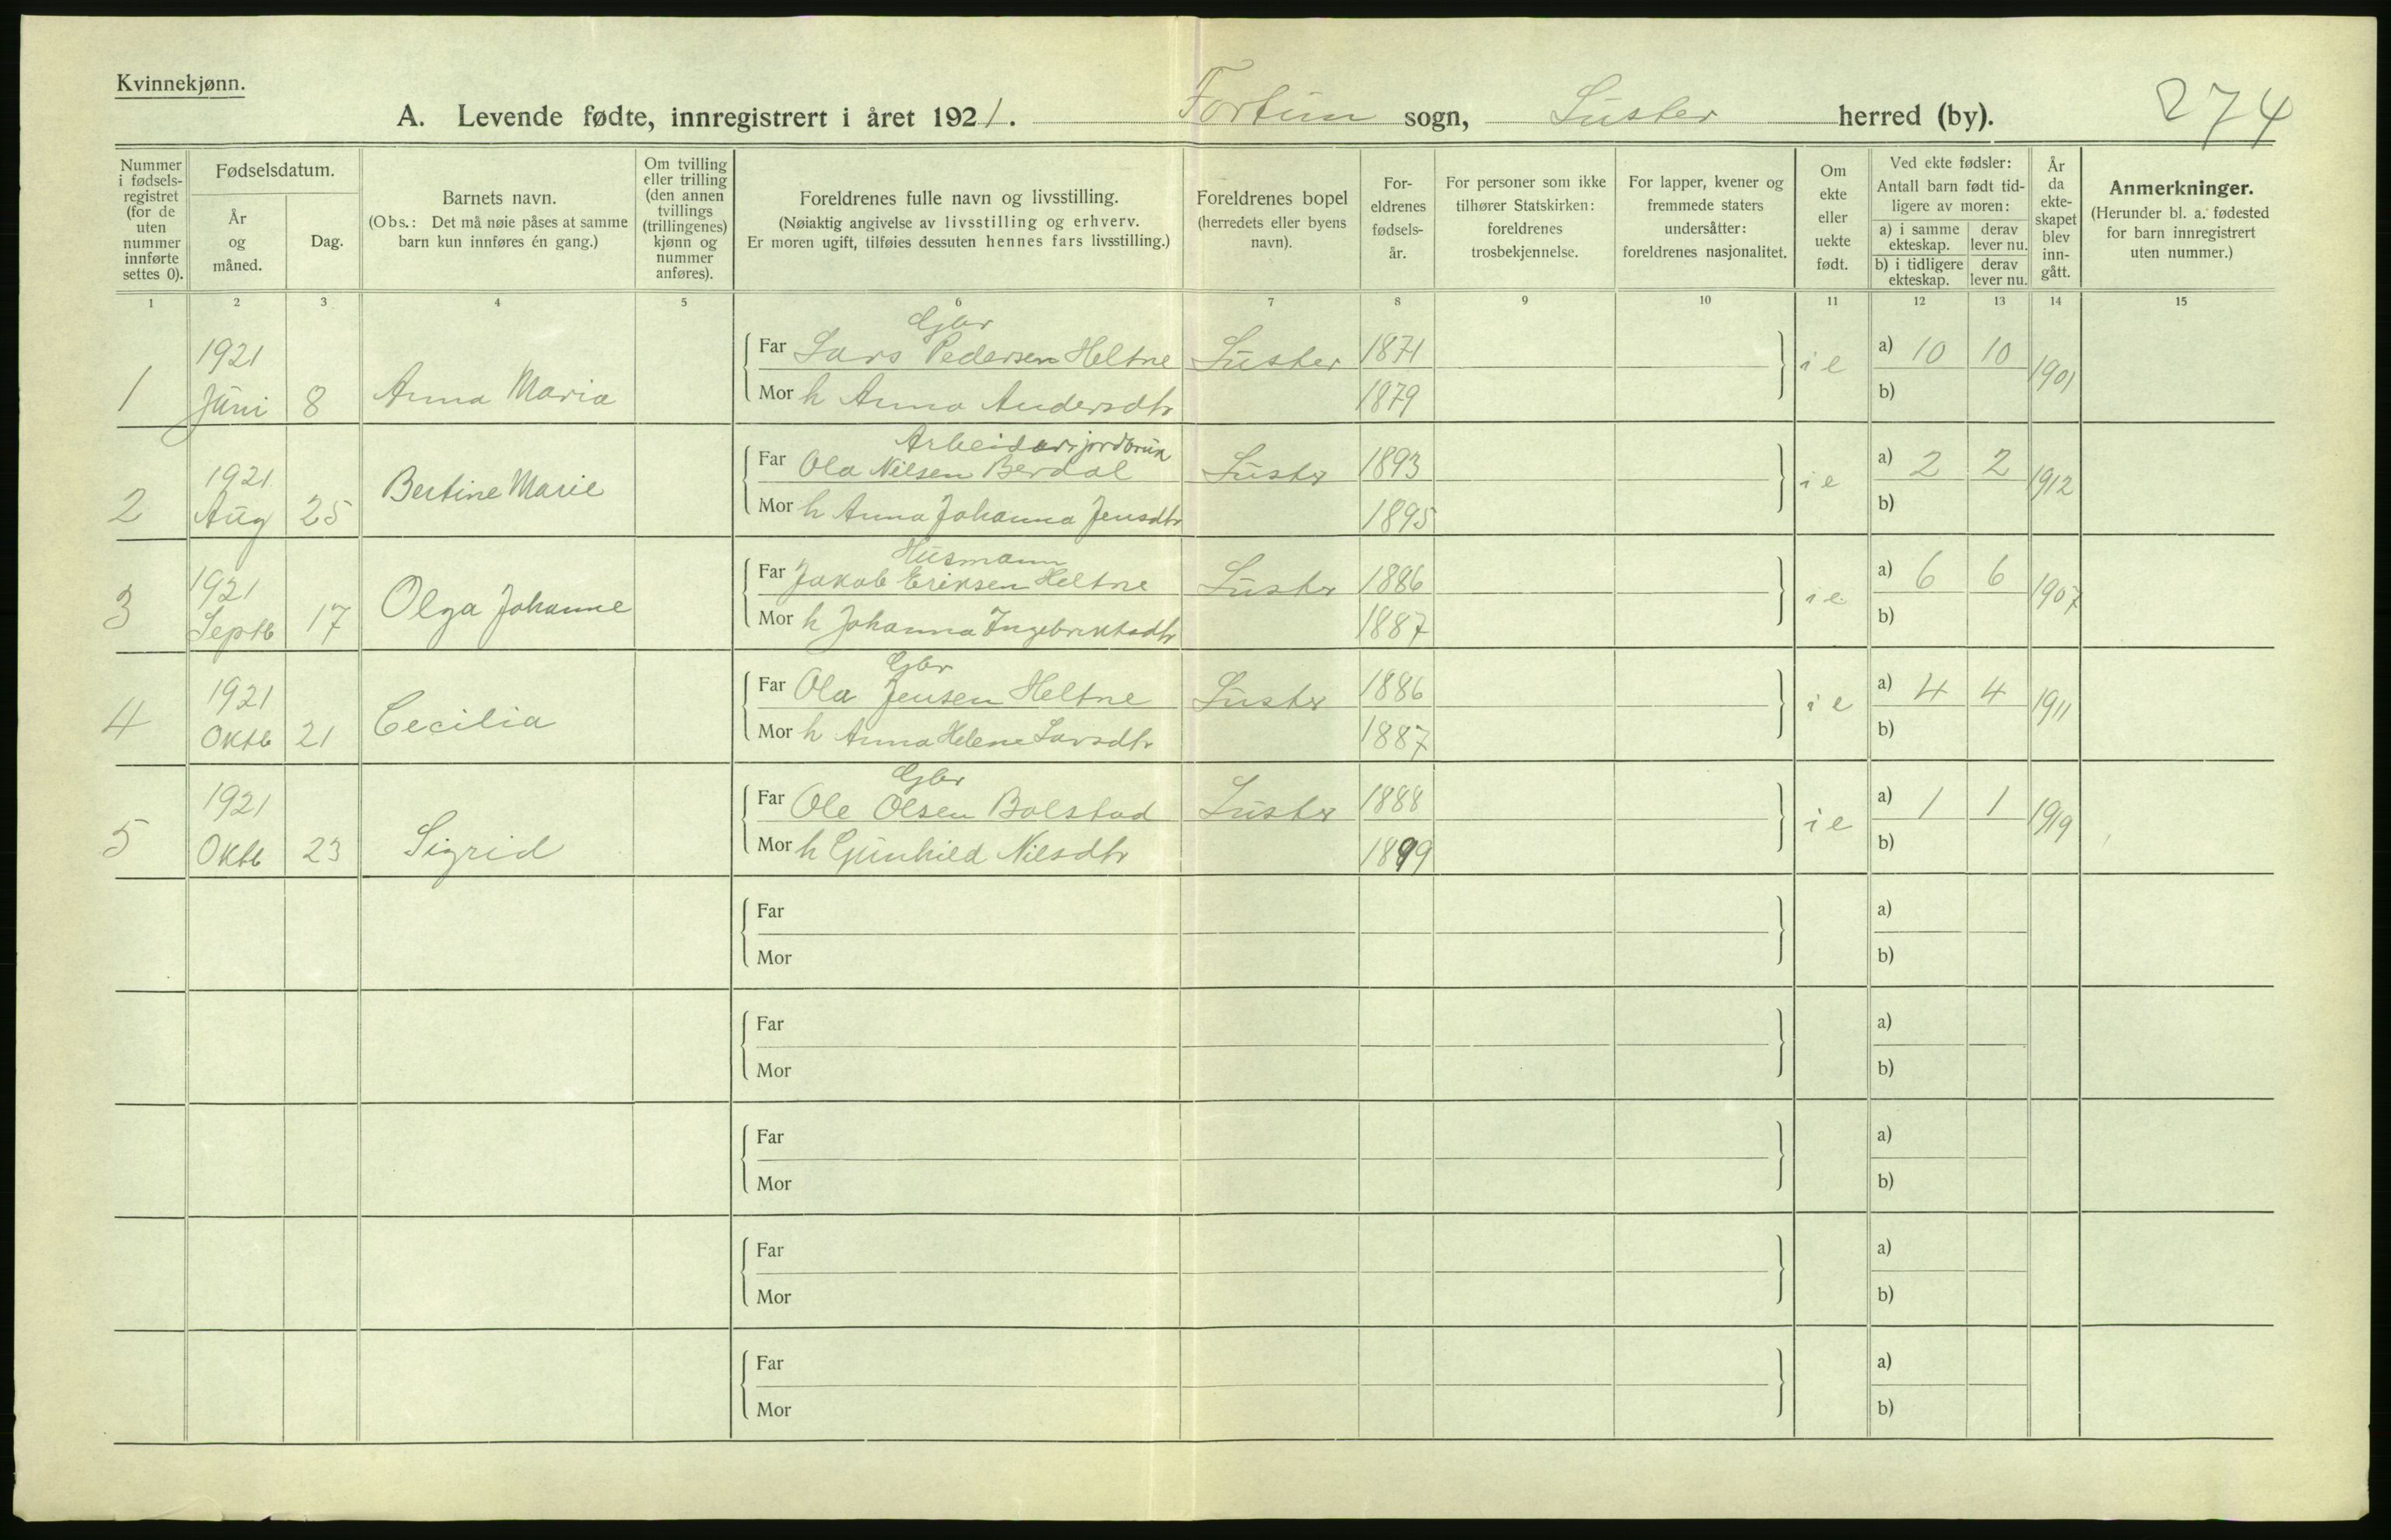 Kvinnekjønn.
A. Levende fødte, innregistrert i året 1921. Fortun sogn, Luster herred (by).
274
Nummer i fødsels-registret (for de uten nummer innførte settes 0).
Fødselsdatum.
År og måned.
Dag.
Barnets navn.
(Obs.: Det må nøie påses at samme barn kun innføres én gang.)
Om tvilling eller trilling (den annen tvillings (trillingenes) kjønn og nummer anføres).
Foreldrenes fulle navn og livsstilling.
(Nøiaktig angivelse av livsstilling og erhverv.
Er moren ugift, tilføies dessuten hennes fars livsstilling.)
Foreldrenes bopel
(herredets eller byens navn).
For-eldrenes fødsels-år.
For personer som ikke tilhører Statskirken: foreldrenes trosbekjennelse.
For lapper, kvener og fremmede staters undersåtter: foreldrenes nasjonalitet.
Om ekte eller uekte født.
Ved ekte fødsler:
Antall barn født tid-ligere av moren:
a) i samme ekteskap.
derav lever nu.
b) i tidligere ekteskap.
derav lever nu.
År da ekte-skapet blev inn-gått.
Anmerkninger.
(Herunder bl. a. fødested for barn innregistrert uten nummer.)
1 2 3 4 5 6 7 8 9 10 11 12 13 14 15
Gbr
1921 Far Lars Pedersen Heltne Luster 1871 a) 10 10
1 Juni 8 Anna Maria Mor h Anna Andersdtr 1879 i e b) 1901
Arbeider jordbruk
1921 Far Ola Nilsen Berdal Luster 1893 a) 2 2
2 Aug 25 Bertine Marie Mor h Anna Johanna Jensdtr 1895 i e b) 1912
Husmann
1921 Far Jakob Eriksen Heltne Luster 1886 a) 6 6
3 Septb 17 Olga Johanne Mor h Johanna Ingebriktsdtr 1887 i e b) 1907
Gbr
1921 Far Ola Jensen Heltne Luster 1886 a) 4 4
4 Oktb 21 Cecilia Mor h Anna Helene Larsdtr 1887 i e b) 1911
Gbr
1921 Far Ole Olsen Bolstad Luster 1888 a) 1 1
5 Oktb 23 Sigrid Mor h Gunhild Nilsdtr 1899 i e b) 1919
Far a)
Mor b)
Far a)
Mor b)
Far a)
Mor b)
Far a)
Mor b)
Far a)
Mor b)